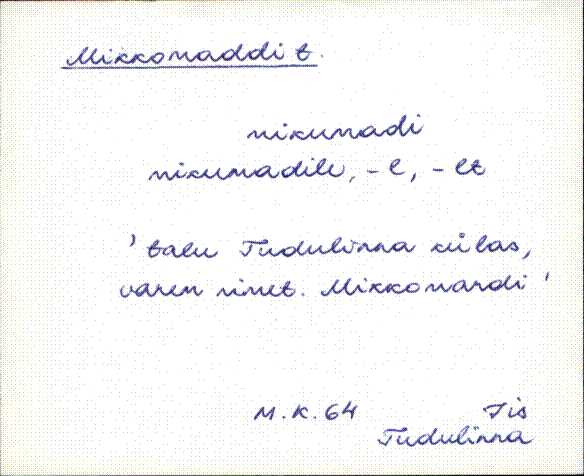 Mikkonaddi t.
nikunadi
nikunadile, -l, -lt
' talu Tudulinna külas,
varem nimet. Mikkonardi '
M.K. 64 Iis
Tudulinna